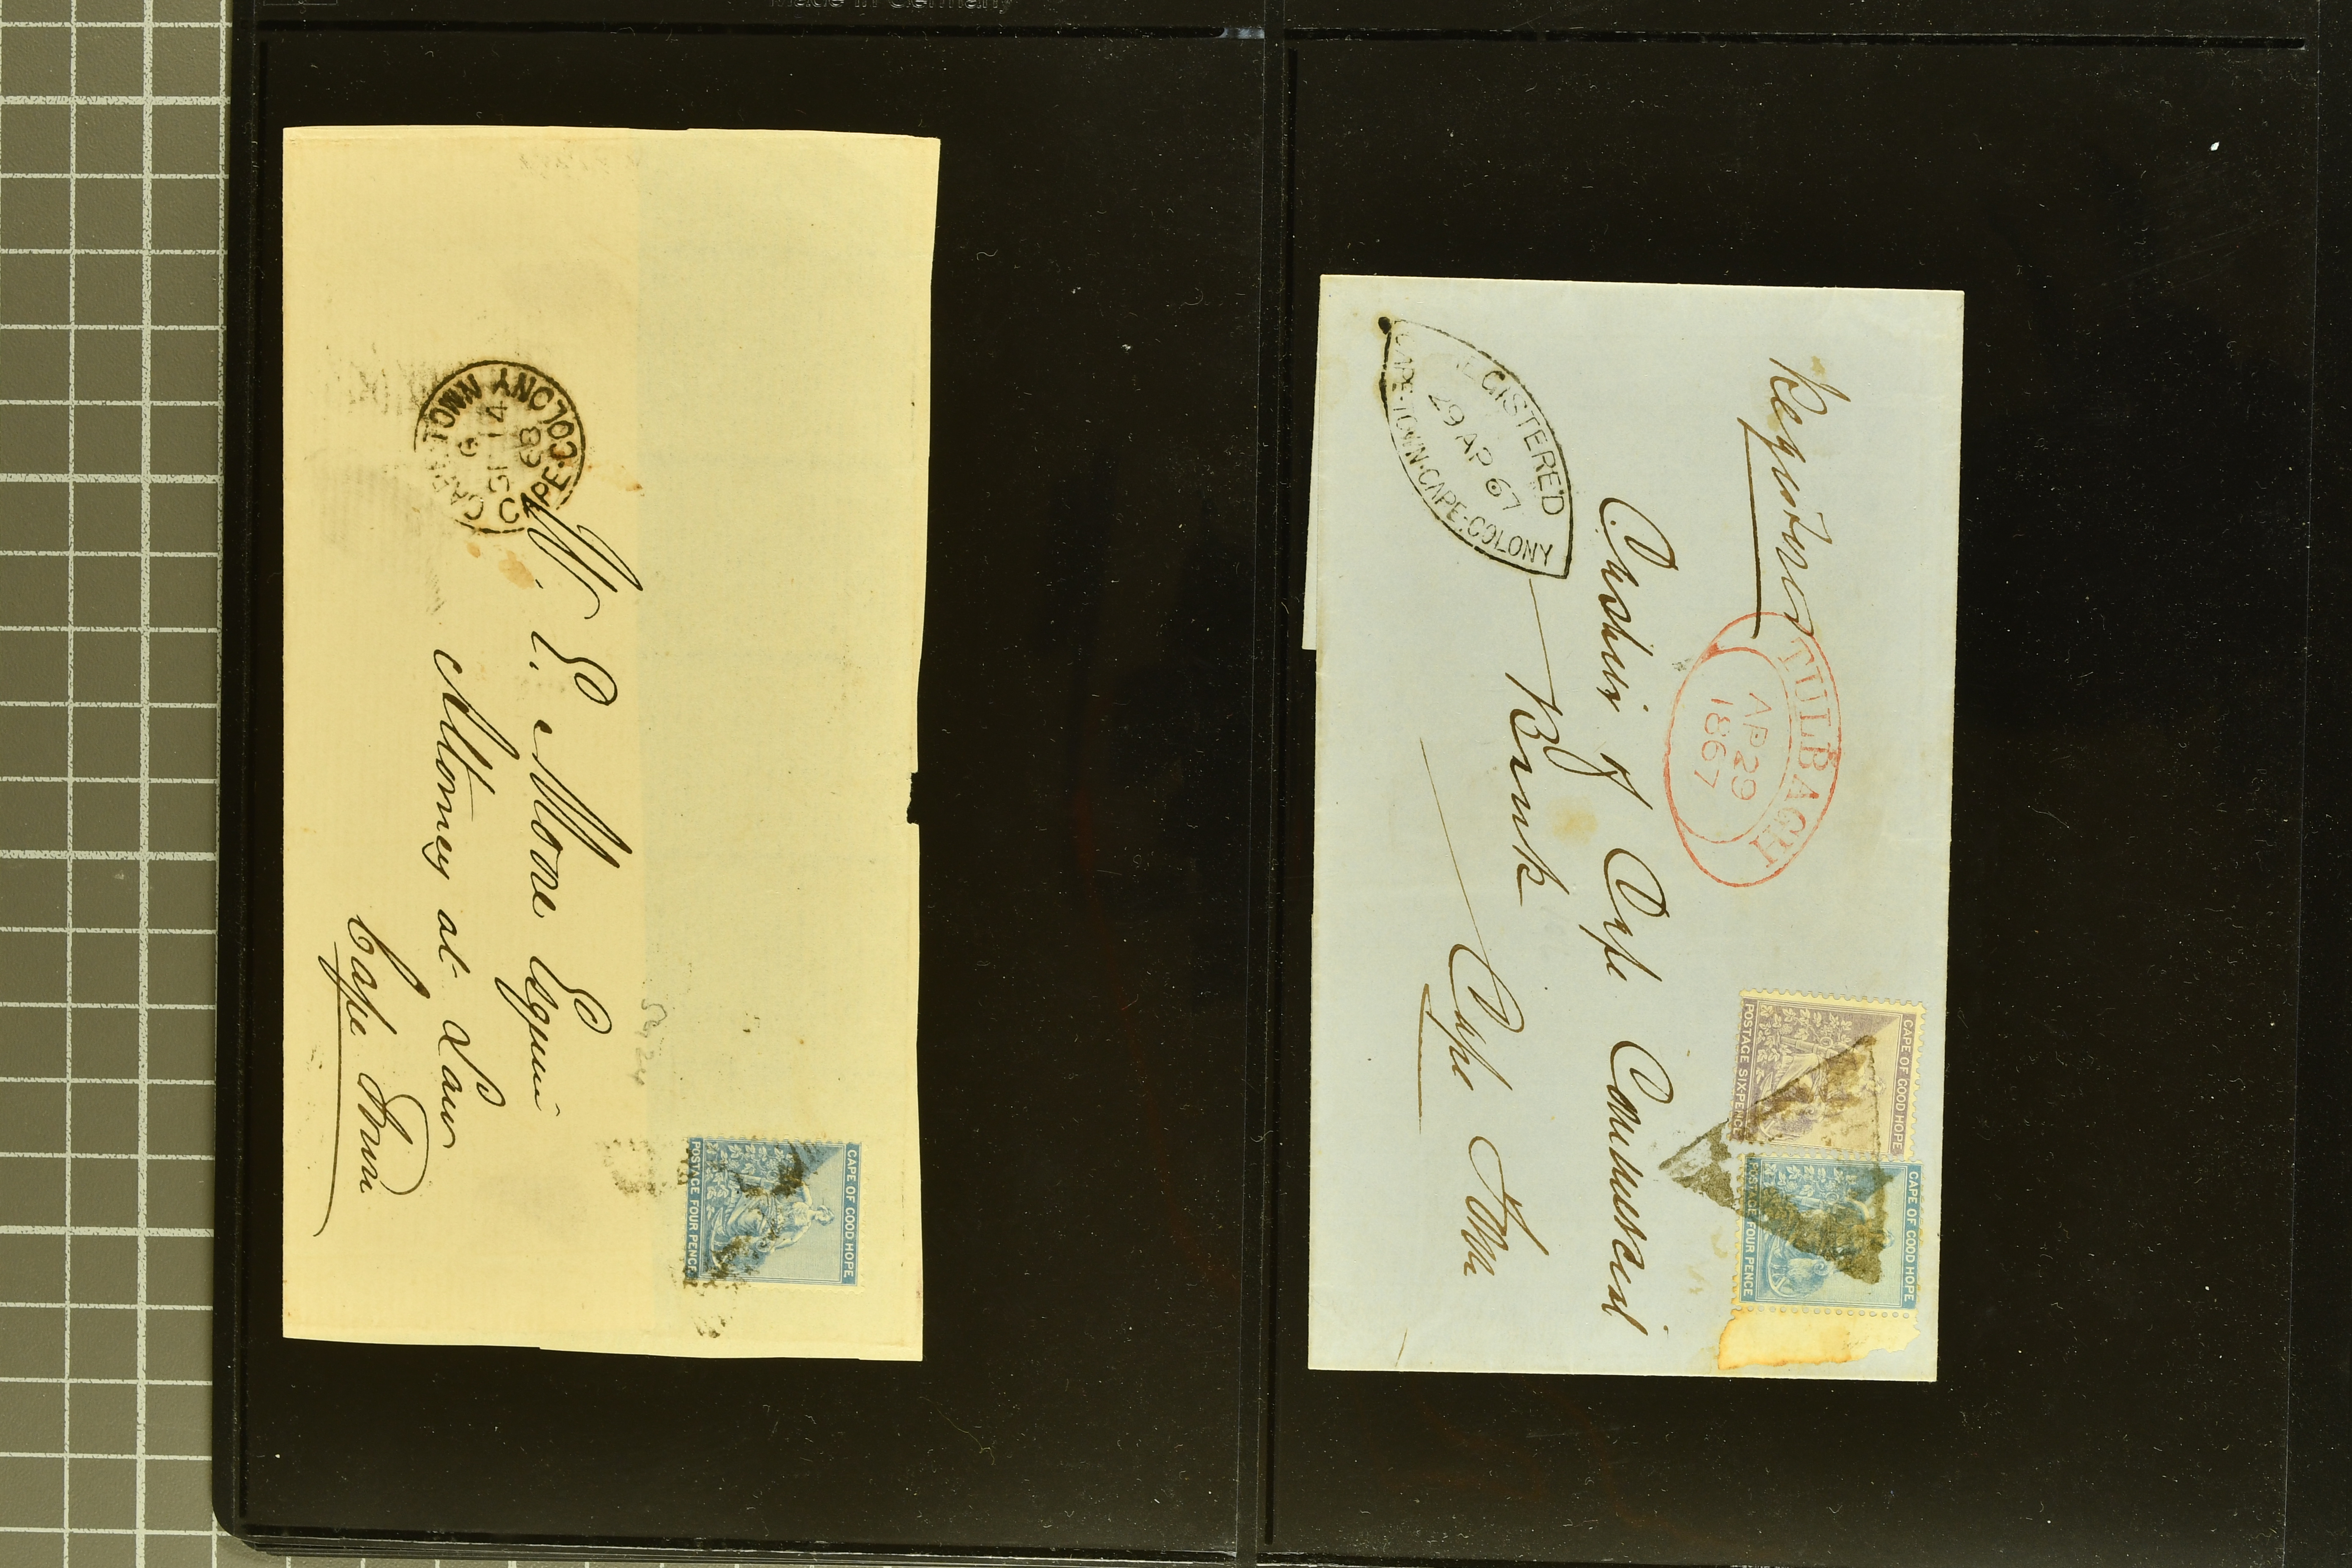 Made in Germany
Registered
TULBACH
AP 29
1867
CAPE OF GOOD HOPE
POSTAGE SIX PENCE
CAPE OF GOOD HOPE
POSTAGE FOUR PENCE
Cashier of Cape Commercial
Bank
Cape Town
REGISTERED
29 AP 67
CAPE·TOWN·CAPE·COLONY
CAPE OF GOOD HOPE
POSTAGE FOUR PENCE
W. E. Moore Esquire
Attorney at Law
Cape Town
CAPE·TOWN
14
68
CAPE·COLONY